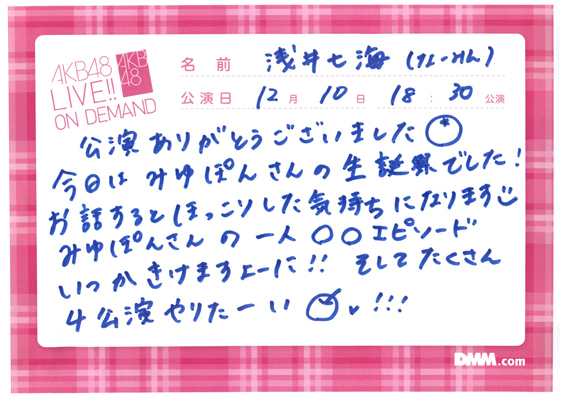 AKB48
LIVE!!
ON DEMAND
AKB
48
名前 浅井七海(なーみん)
公演日 12月10日 18:30公演
公演ありがとうございました
今日はみゆぽんさんの生誕祭でした!
お話するとほっこりした気持ちになります
みゆぽんさんの一人〇〇エピソード
いつかきけますよーに!! そしてたくさん
4公演やりたーい !!!
DMM.com